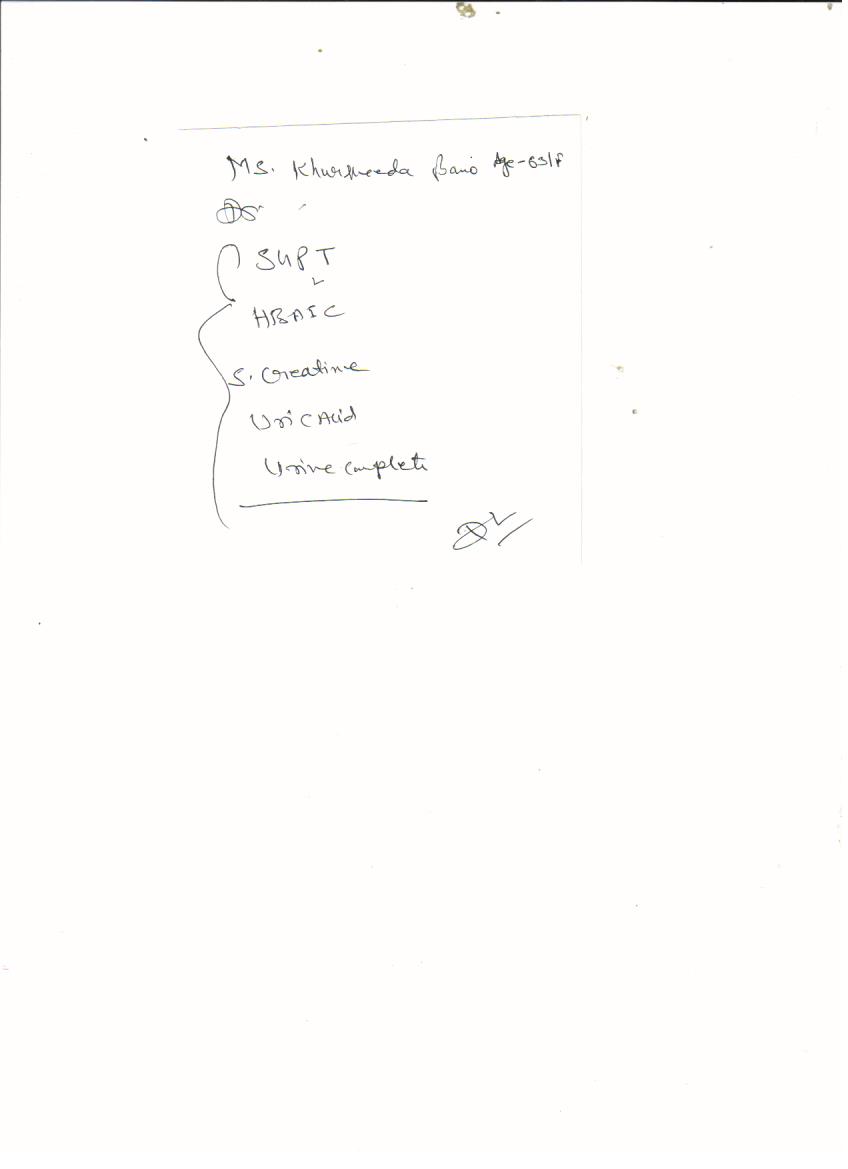 Ms. Khursheeda Bano Age-63/F
SGPT
HBA1C
S. Creatine
Uric Acid
Urine complete